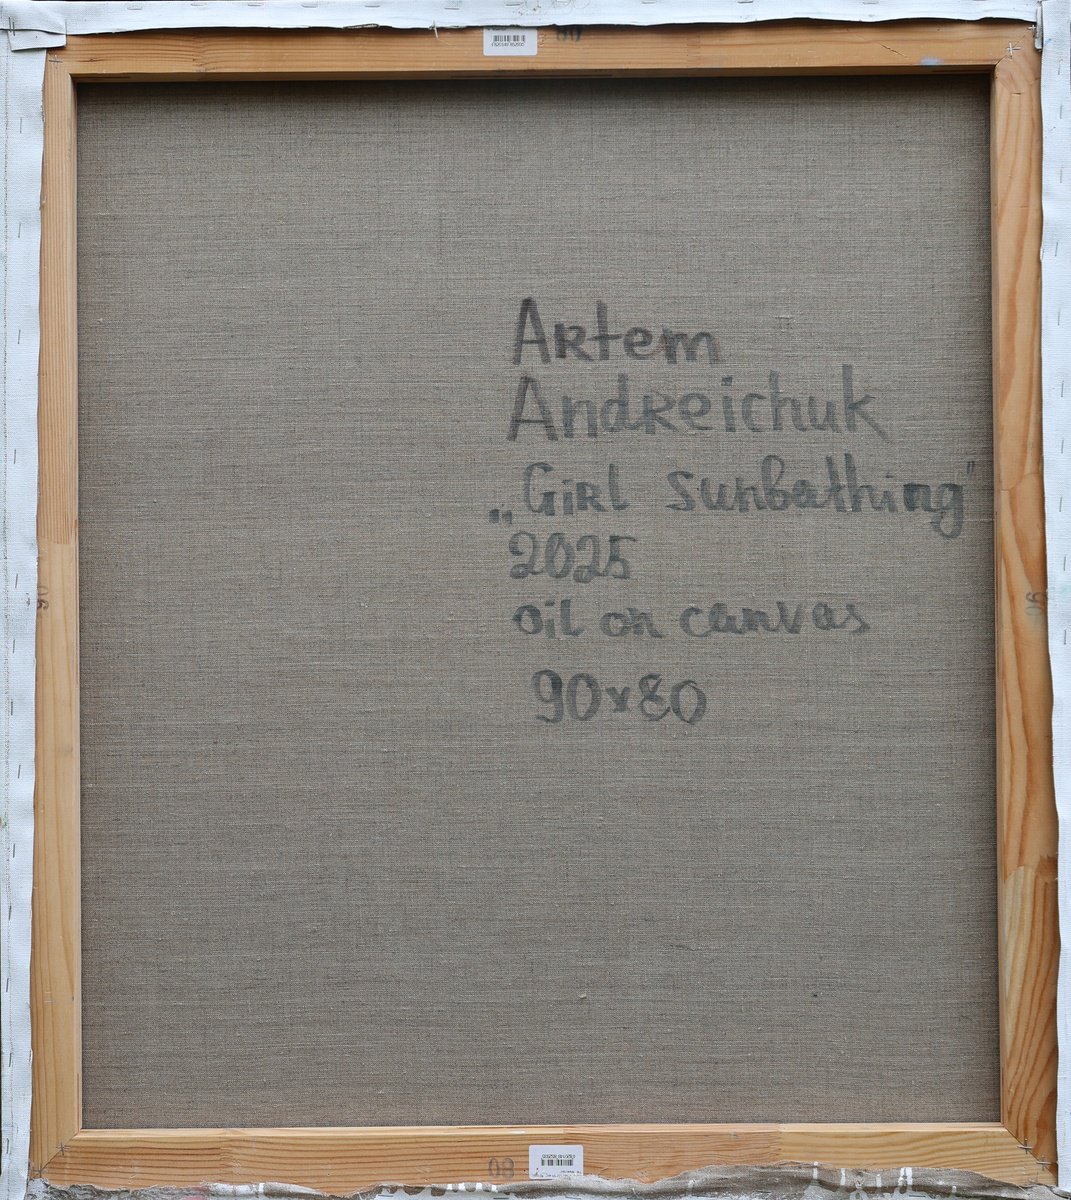 80
Artem
Andreichuk
„Girl sunbathing"
2025
oil on canvas
90x80
90
90
80